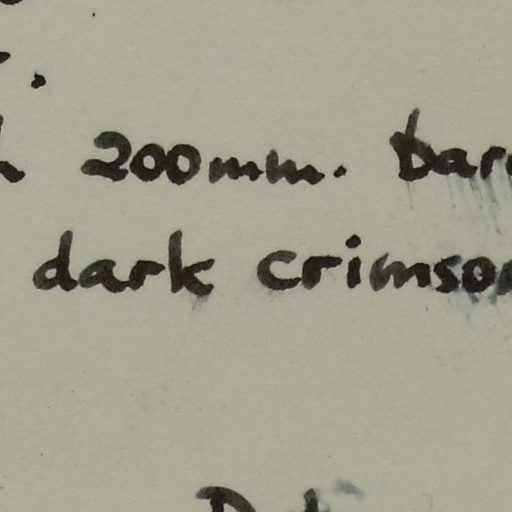 200mm. Bar
dark crimson